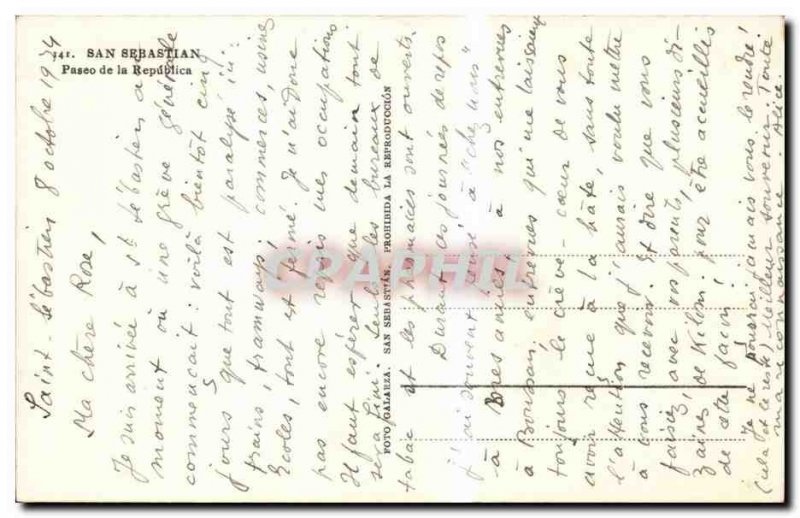 141. SAN SEBASTIAN
Paseo de la República
Saint-Sébastien 8 octobre 1934
Ma chère Rose,
Je suis arrivée à St Sébastien au
moment où une grève générale
commençait : voilà bientôt cinq
jours que tout est paralysé ici:
trains, tramways, commerces, usines
Ecoles, tout est fermé. Je n'ai donc
pas encore repris mes occupations
Il faut espérer que demain tout
sera fini. Seuls les bureaux de
tabac et les pharmacies sont ouverts.
Durant ces journées de repos
j'ai souvent pensé à "chez nous"
à Bres à nos entrevues
à Boussan, entrevues qui me laissent
toujours le crève-coeur de vous
avoir reçue à la hâte, sans toute
l'attention que j'aurais voulu mettre
à vous recevoir. Et dire que vous
faisiez, avec vos parents, plusieurs di-
zaines de Kilom. pour être accueillis
de cette façon!
Je ne pourrai jamais vous le rendre!
(cela et le reste) Meilleur souvenir. Toute
ma reconnaissance. Alice.
FOTO GALARZA. SAN SEBASTIÁN. PROHIBIDA LA REPRODUCCIÓN
CPAPHIL